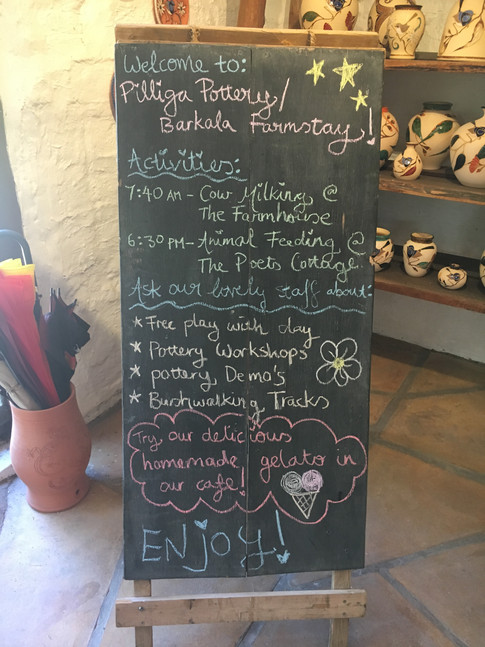 Welcome to:
Pilliga Pottery/
Barkala Farmstay!
Activities:
7:40 AM - Cow Milking @
The Farmhouse
6:30 PM - Animal Feeding @
The Poets Cottage
Ask our lovely staff about:
* Free play with clay
* Pottery Workshops
* pottery Demo's
* Bushwalking Tracks
Try our delicious
homemade gelato in
our cafe!
ENJOY!